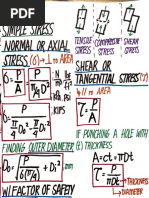 SIMPLE STRESS
NORMAL OR AXIAL
STRESS (6) → ⊥ m AREA
6 = P/A
P/(π/4 D²)
N
lb
KIPS
6 = P/(π/4 Do² - π/4 Di²)
FINDING OUTER DIAMETER
Do = √(P4/6(π) + Di²)
W/ FACTOR OF SAFETY
TENSILE STRESS
COMPRESSIVE STRESS
SHEAR STRESS
SHEAR OR
TANGENTIAL STRESS (τ)
4 // m AREA
τ = P/A
IF PUNCHING A HOLE WITH
(t) THICKNESS
A = ct = πDt
τ = P/πDt
THICKNESS
DIAMETER